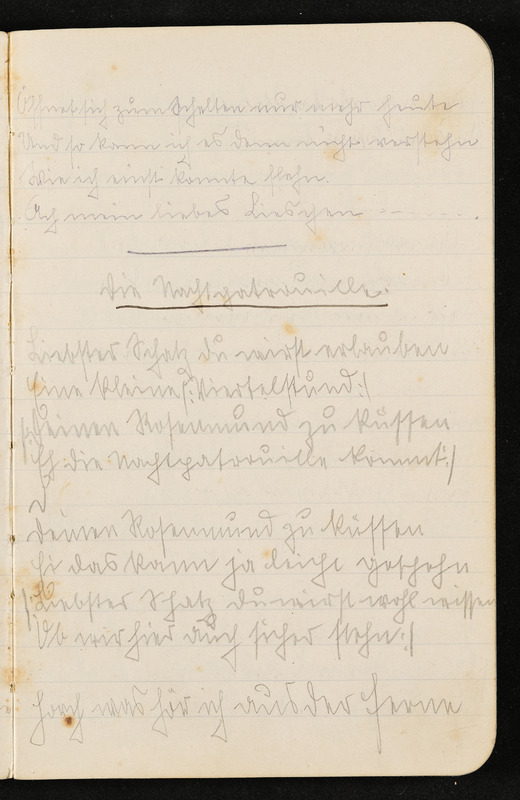 Öffnet sich zum Schelten nur mehr heute
Und so kann ich es denn nicht verstehn
Wie ich einst konnte flehn.
Ach mein liebes Lieschen - - - . . . .
Die Nachtpatrouille.
Liebster Schatz du wirst erlauben
Eine kleine /: Viertelstund :/
/: Deinen Rosenmund zu küssen
Eh die Nachtpatrouille kommt :/
Deinen Rosenmund zu küssen
Ei das kann ja leicht geschehn
/: Liebster Schatz du wirst wohl wissen
Ob wir hier auch sicher stehn :/
Horch was hör ich aus der Ferne